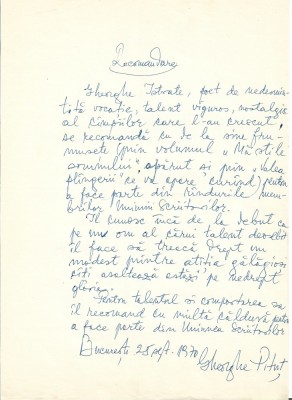 Recomandare
Gheorghe Istrate, poet de nedezmin-
țită vocație, talent viguros, nostalgic
al cîmpiilor care l-au crescut,
se recomandă cu de la sine fru-
musețe (prin volumul „Măștile
somnului" apărut și prin „Valea
plîngerii" ce va apare curînd) pentru
a face parte din rîndurile mem-
brilor Uniunii Scriitorilor.
Îl cunosc încă de la debut ca
pe un om al cărui talent deosebit
îl face să treacă drept un
modest printre atîția gălăgioși
ce asaltează astăzi pe nedrept
gloria.
Pentru talentul și comportarea sa
îl recomand cu multă căldură pentru
a face parte din Uniunea Scriitorilor
București 25 sept. 1970
Gheorghe Pituț